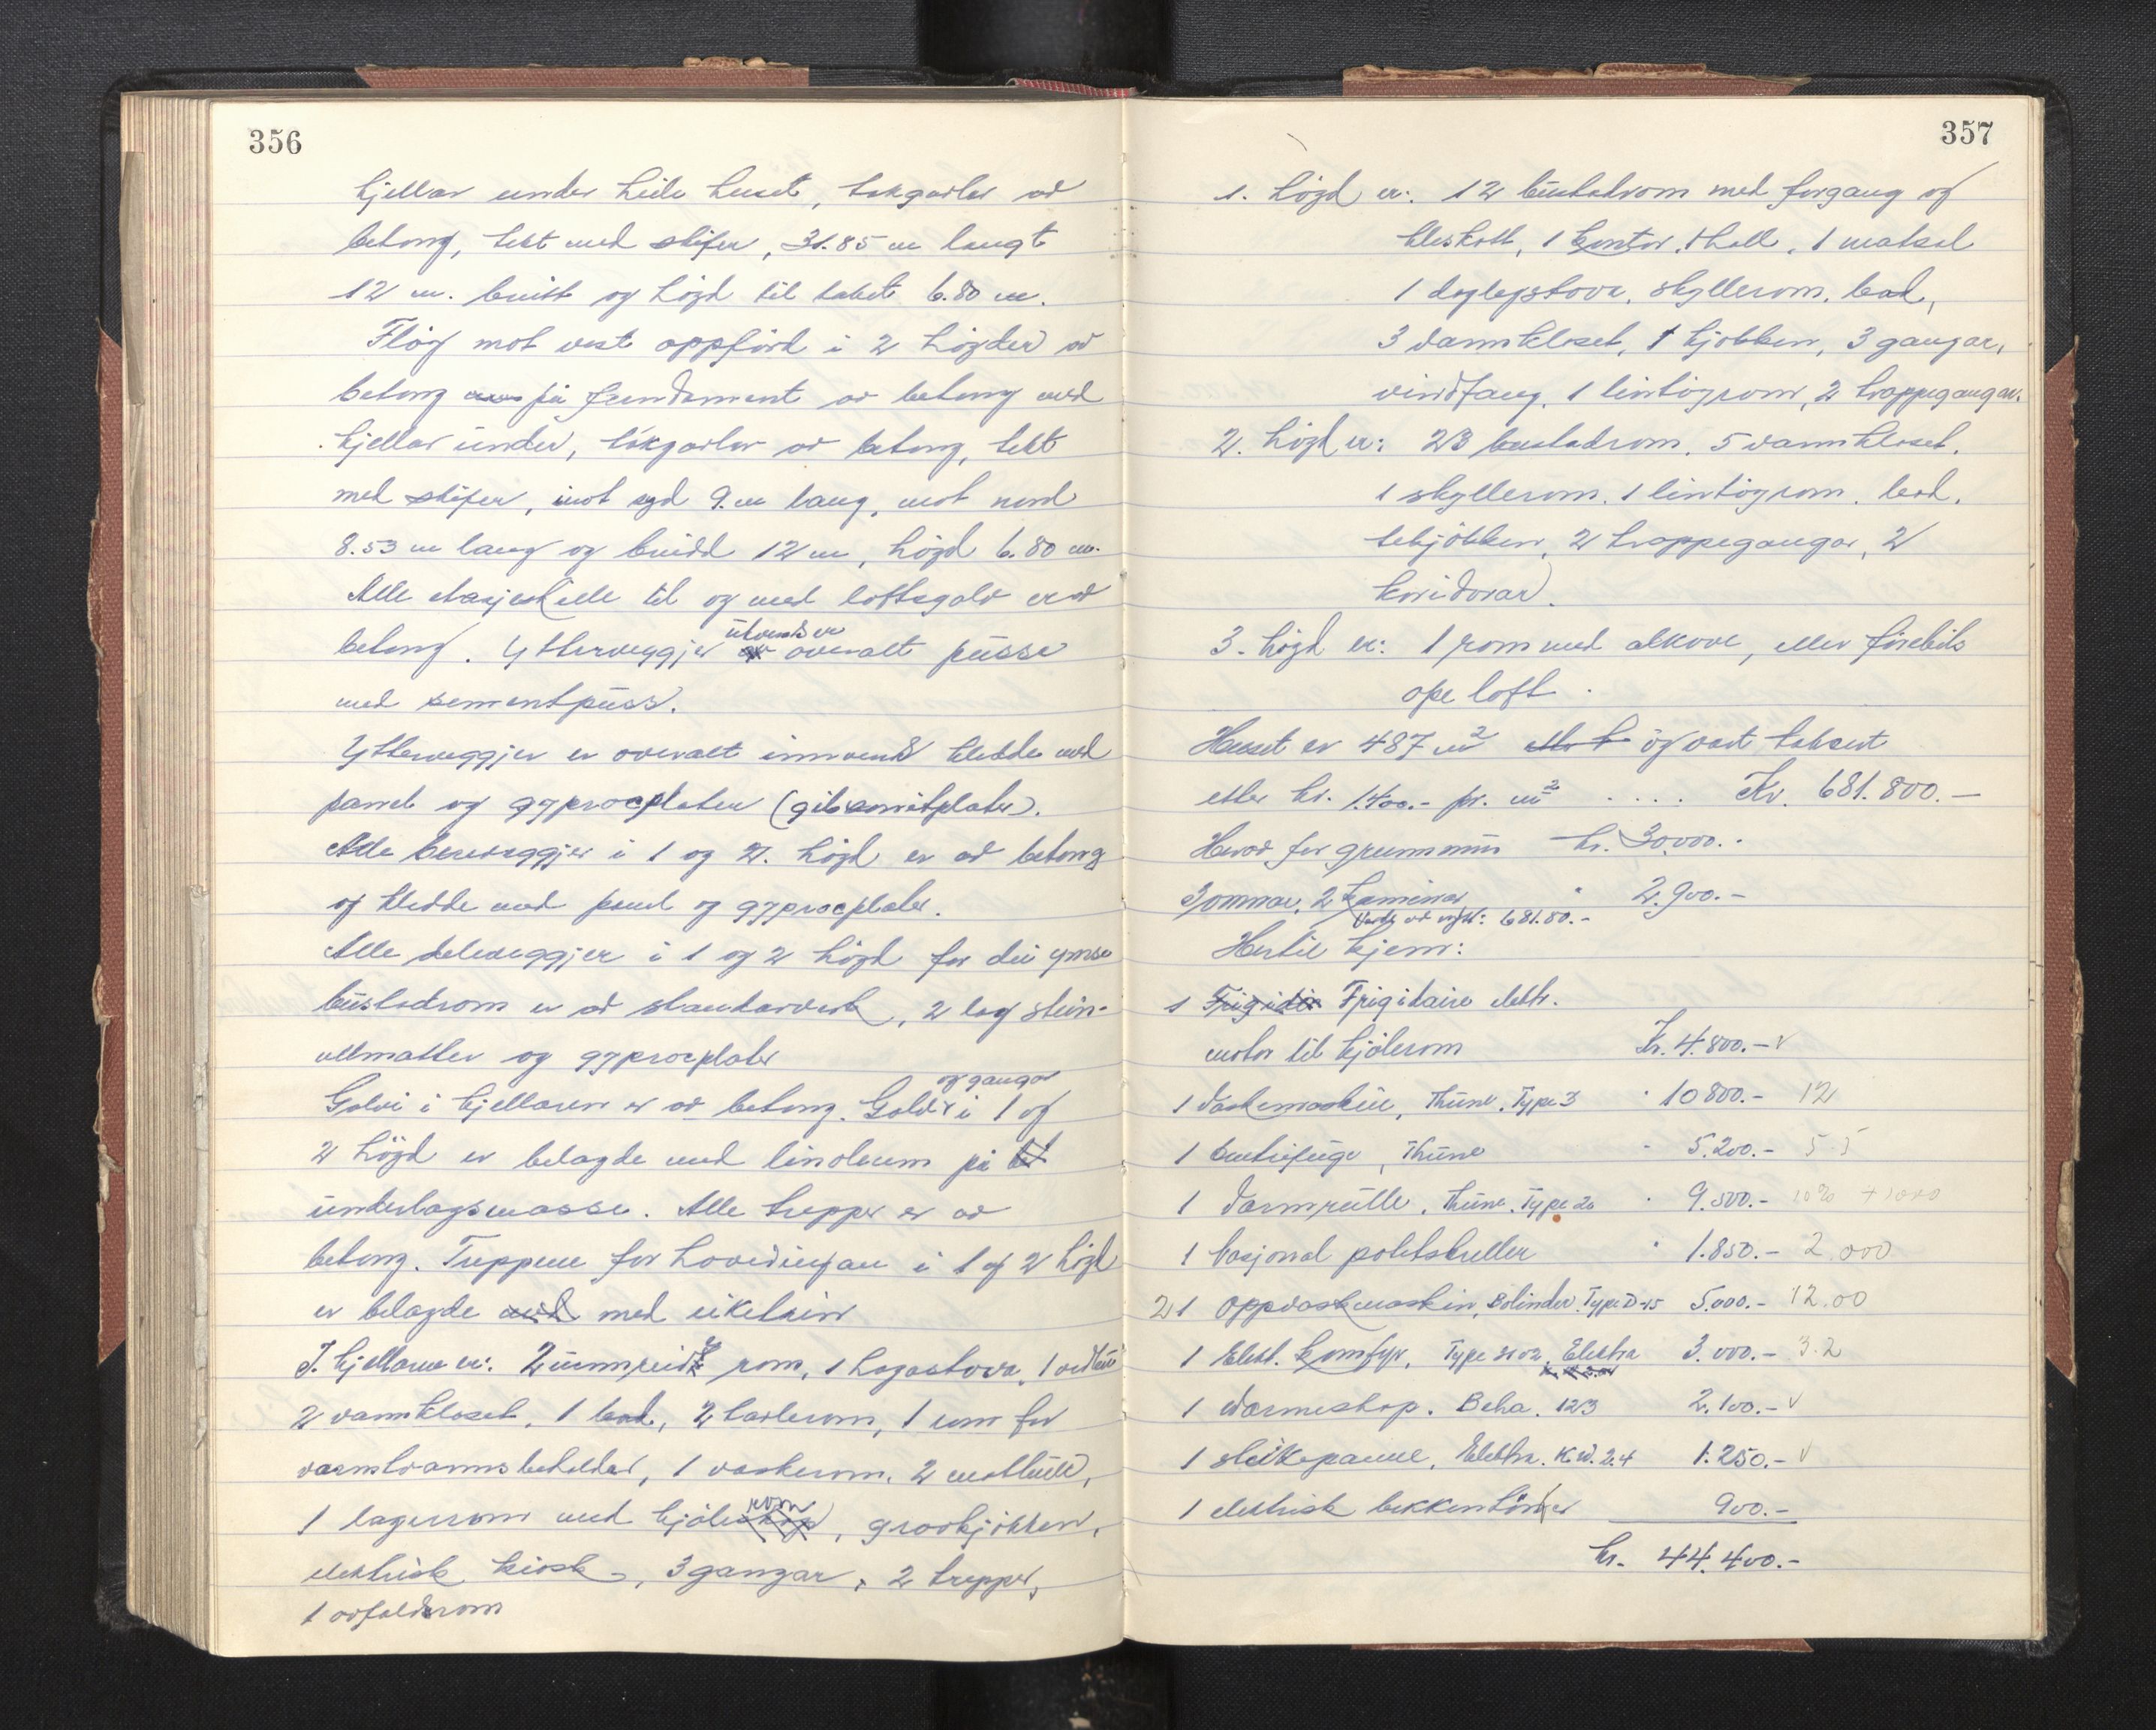 356
kjellar under heile huset, takgarlar av
betong, tekt med skifer, 31.85 m langt
12 m. breitt og högd til taket 6.80 m.
Flöy mot vest oppförd i 2 högder av
betong på fundament av betong med
kjellar under, takgarlar av betong, tekt
med skifer, mot syd 9.m lang, mot nord
8.53 m lang og breidd 12 m, högd 6.80 m.
Alle etasjeskille til og med loftsgolv er av
betong. Ytterveggjer utvendes er overalt pussa
med sementpuss.
Ytterveggjer er overalt innvend kledde med
panel og gyprocplater (gibsonitplater).
Alle bereveggjer i 1 og 2. högd er av betong
og kledde med panel og gyprocplater.
Alle deleveggjer i 1 og 2 högd for dei ymse
bustadrom er av standarverk, 2 lag stein-
ullmatter og gyprocplater
Golvi i kjellaren er av betong. Golvi og gangar i 1 og
2 högd er belagde med linoleum på
underlagsmasse. Alle trapper er av
betong. Trappene for hovedinngan i 1 og 2 högd
er belagde med eiketrin
I kjellaren er: 2 uinnreidde rom, 1 hagastova, 1
2 vannkloset, 1 bad, 2 badlerom, 1 rom for
varmtvannsbeholder, 1 vaskerom, 2 matbuer,
1 lagerrom med kjölerom, grovkjökken,
elektrisk kiosk, 3 gangar, 2 trapper,
1 avfaldsrom
357
1. högd er: 12 bustadrom med forgang og
kleskott, 1 kontor, 1 hall, 1 matsal
1 daglegstova, skyllerom, bad,
3 vannkloset, 1 kjökken, 3 gangar,
vindfang, 1 lintöyrom, 2 trappegangar.
2. högd er: 23 bustadrom, 5 vannkloset,
1 skyllerom, 1 lintöyrom, bad,
tekjökken, 2 trappegangar, 2
koridorar.
3. högd er: 1 rom med alkove, eller förebels
ope loft.
Huset er 487 m² og vart taksert
etter kr. 1.400.- pr. m² .... Kr. 681.800.-
Herav for grunnmur kr. 30.000.-
Sommar, 2 kaminar " 2.900.-
681.80.-
Hertil kjem:
1 Frigidaire elektr.
motor til kjölerom Kr. 4.800.- v
1 vaskemaskin, Thune. Type 3 " 10800.- 12
1 sentrifuge, Thune " 5.200.- 5.5
1 varmrulle, Thune. Type 20 " 9.500.- 10% +1000
1 Nasjonal potetskreller " 1.850.- 2.000
2 1 oppvaskmaskin, Bolinder. Type D-15 5.000.- 12.00
1 Elekt. komfyr, Type 3102, Elektra 3.000.- 3.2
1 varmeskap. Beha. 123 2.100.- v
1 steikepanne, Elektra. K.W. 2.4 1.250.- v
1 elektrisk bekkentörker 900.-
kr. 44.400.-